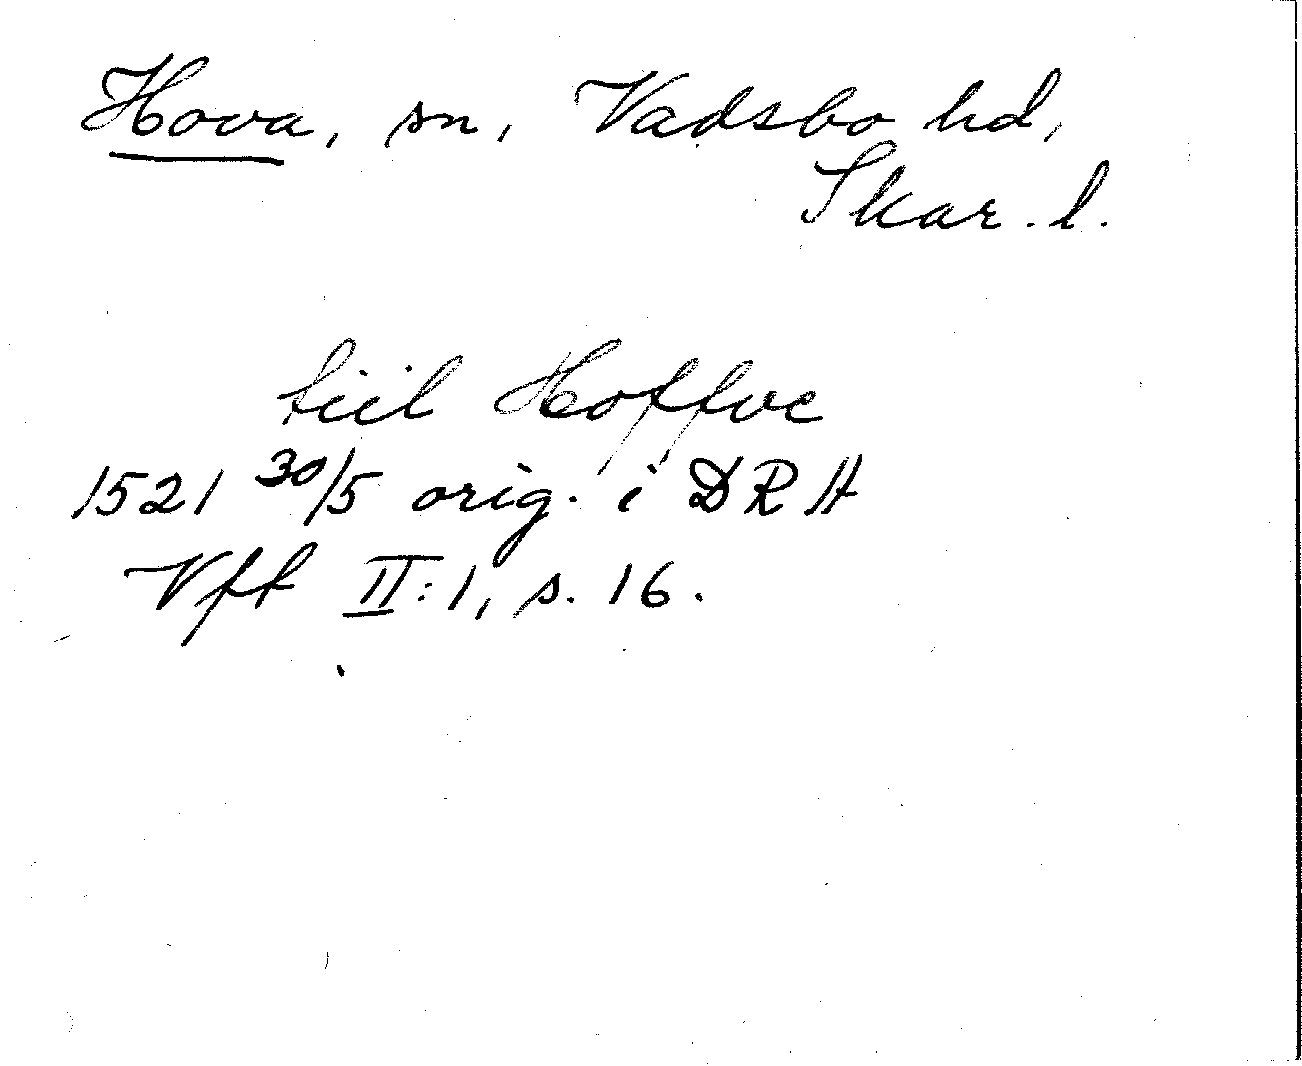 Hova, sn, Vadsbo hd,
Skar. l.
tiil Hoffve
1521 30/5 orig. i DRA
Vff II:1, s. 16.